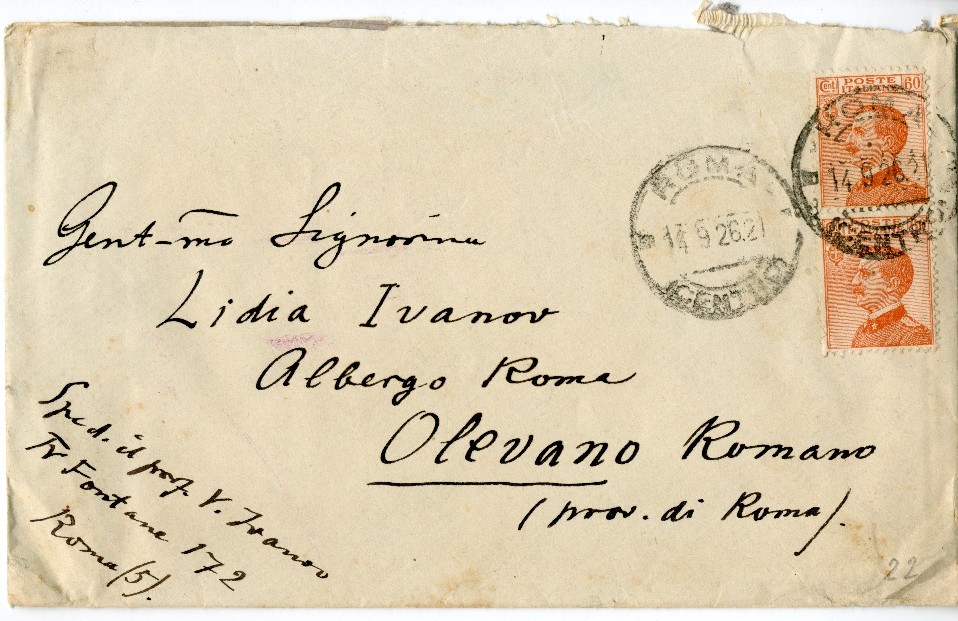 Cent. POSTE 60
ITALIANE
ROMA
14 9 26.21
CENTRO
ROMA
14 9 26.21
CENTRO
POSTE
Gent-ma Signorina
Lidia Ivanov
Albergo Roma
Olevano Romano
(prov. di Roma).
Sped. il prof. V. Ivanov
Fontane 172
Roma (5).
22